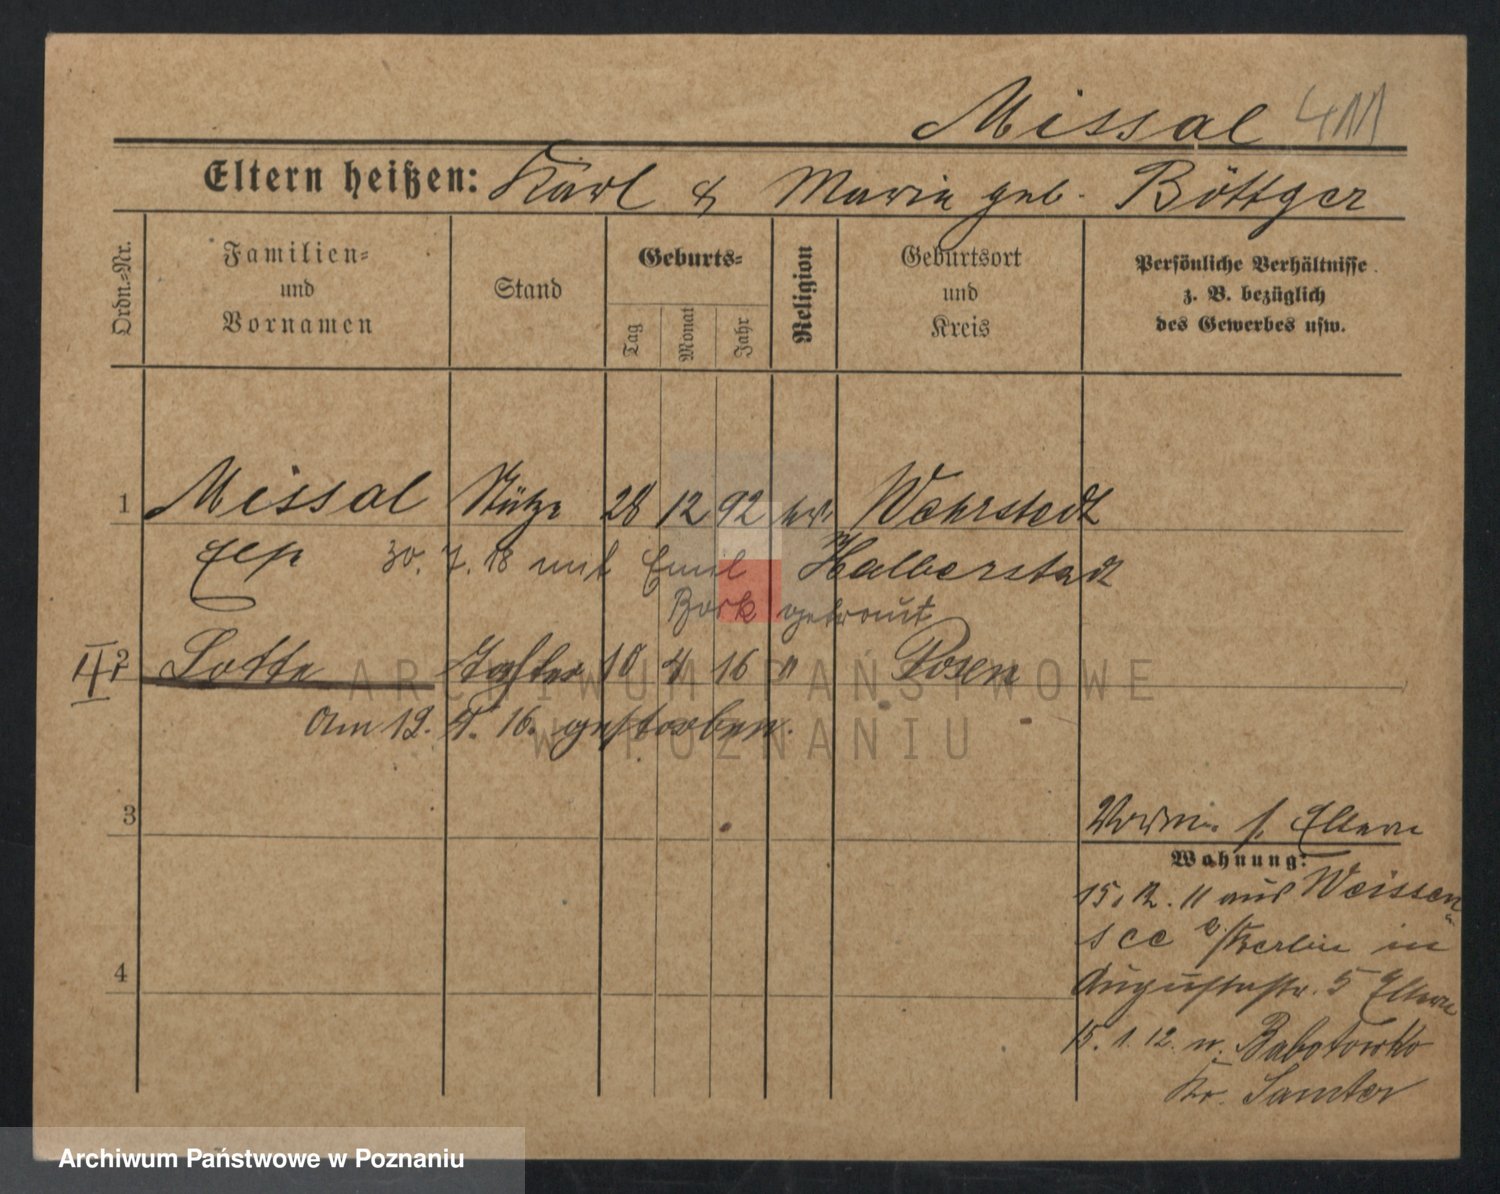 Missal 411
Eltern heißen: Karl & Marie geb. Böttger
Ordn.-Nr.
Familien-
und
Vornamen
Stand
Geburts-
Tag
Monat
Jahr
Religion
Geburtsort
und
Kreis
Persönliche Verhältnisse
z. B. bezüglich
des Gewerbes usw.
1 Missal Stütze 28 12 92 ev. Wehrstedt
Else 30. 7. 18 mit Emil Halberstadt
Bork getraut
2 Lotte Tochter 10 4 16 " Posen
Am 12. 4. 16. gestorben.
3
Vorm. s. Eltern
Wohnung:
15. 12. 11 aus Weissen-
see b/Berlin in
Augustastr. 5 Eltern
4
15. 1. 12. n. Baborowko
Kr. Samter
ARCHIWUM PAŃSTWOWE
W POZNANIU
Archiwum Państwowe w Poznaniu